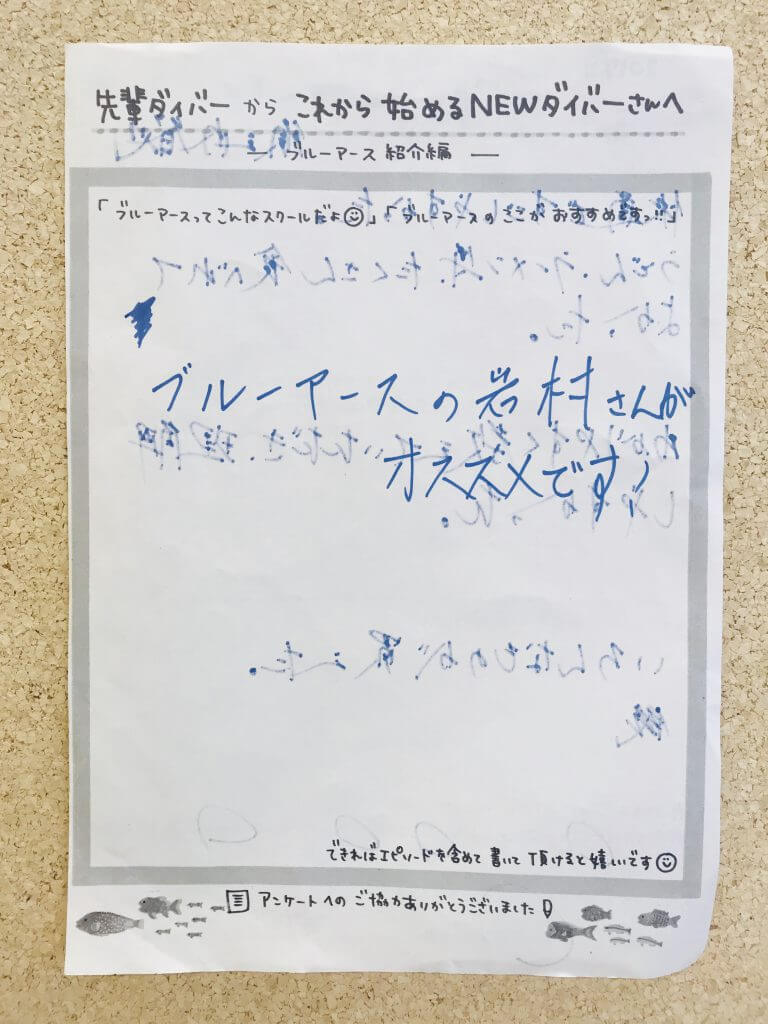 先輩ダイバーから これから始めるNEWダイバーさんへ
― ブルーアース 紹介編 ―
「ブルーアースってこんなスクールだよ☺」「ブルーアースのここがおすすめですっ!!」
ブルーアースの岩村さんが
オススメです!
できればエピソードを含めて書いて頂けると嬉しいです☺
アンケートへのご協力ありがとうございました